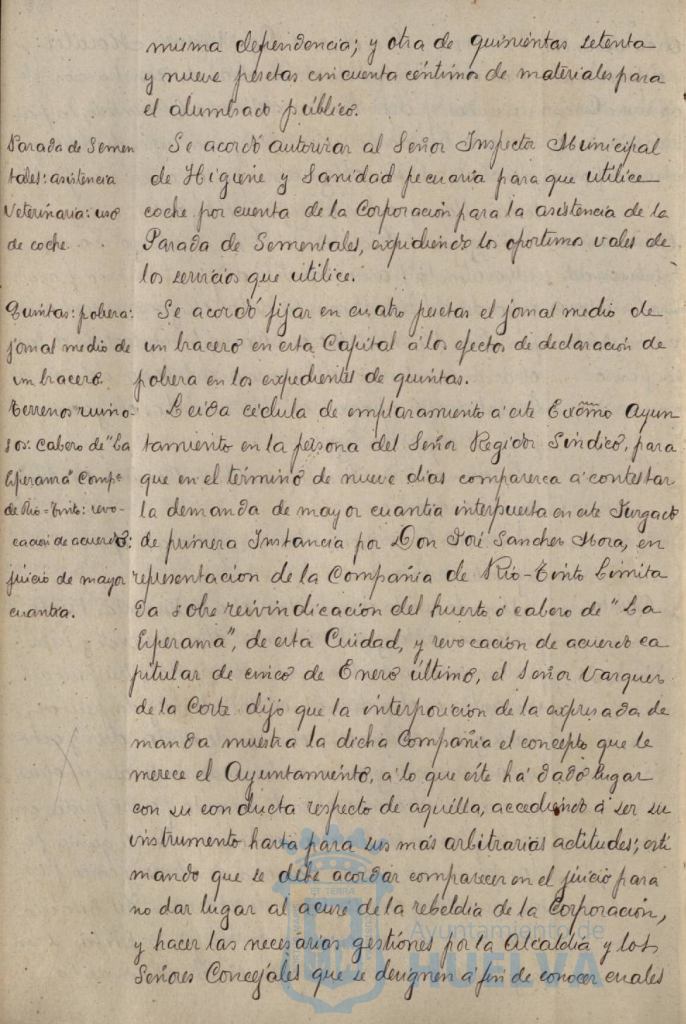 misma dependencia; y otra de quinientas setenta
y nueve pesetas cincuenta céntimos de materiales para
el alumbrado público.
Parada de Semen
tales: asistencia
Veterinaria: uso
de coche
Se acordó autorizar al Señor Inspector Municipal
de Higiene y Sanidad pecuaria para que utilice
coche por cuenta de la Corporación para la asistencia de la
Parada de Sementales, expidiendo los oportunos vales de
los servicios que utilice.
Quintas: pobreza:
jornal medio de
un bracero.
Se acordó fijar en cuatro pesetas el jornal medio de
un bracero en esta Capital á los efectos de declaración de
pobreza en los expedientes de quintas.
Terrenos ruino-
sos: cabezo de "La
Esperanza" Compª
de Rio-Tinto: revo-
cación de acuerdo:
juicio de mayor
cuantía.
Leida cédula de emplazamiento á este Excmo Ayun
tamiento en la persona del Señor Regidor Síndico, para
que en el término de nueve días comparezca á contestar
la demanda de mayor cuantía interpuesta en este Juzgado
de primera Instancia por Don José Sanchez Mora, en
representación de la Compañía de Rio-Tinto Limita
da sobre reivindicación del huerto ó cabezo de "La
Esperanza", de esta Ciudad, y revocación de acuerdo ca
pitular de cinco de Enero último, el Señor Vazquez
de la Corte dijo que la interposición de la expresada de
manda muestra la dicha Compañía el concepto que le
merece el Ayuntamiento, á lo que éste há dado lugar
con su conducta respecto de aquélla, accediendo á ser su
instrumento hasta para sus más arbitrarias actitudes; esti
mando que se debe acordar comparecer en el juicio para
no dar lugar al acuse de la rebeldía de la Corporación,
y hacer las necesarias gestiones por la Alcaldía y los
Señores Concejales que se designen á fin de conocer cuales
ET TERRÆ
Ayuntamiento de
HUELVA